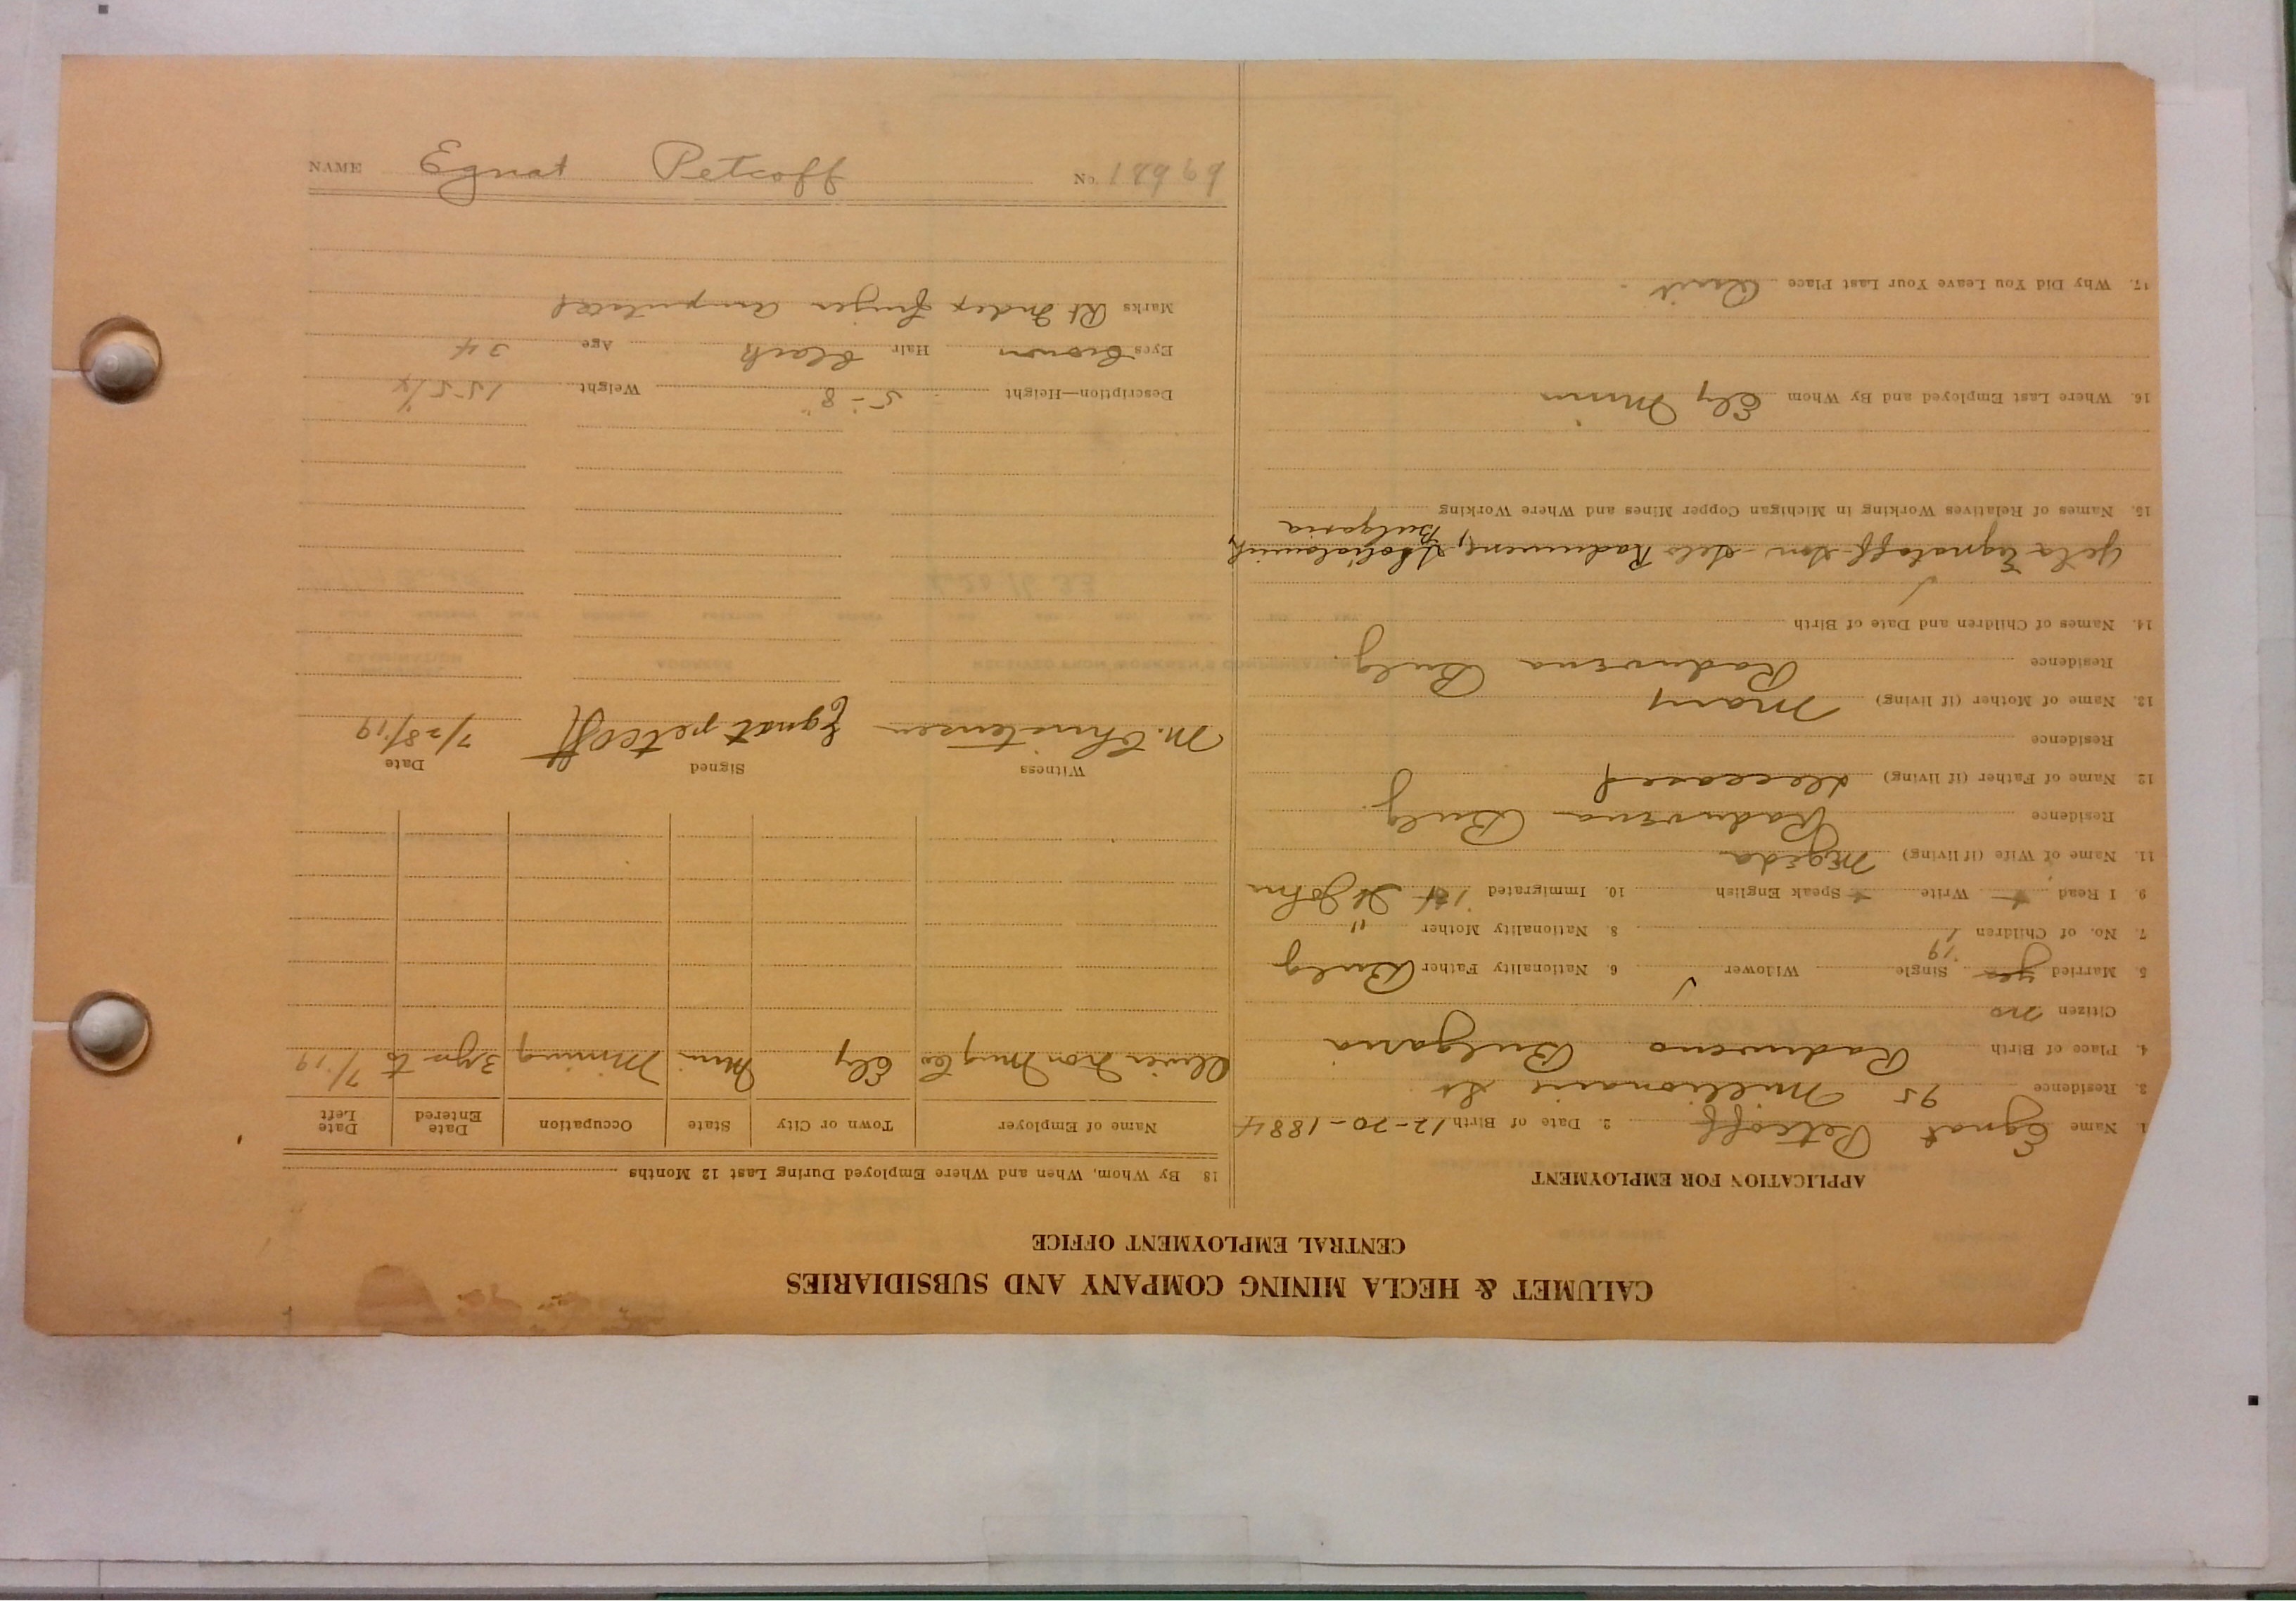 NAME Egnat Petcoff No. 18969
CALUMET & HECLA MINING COMPANY AND SUBSIDIARIES
CENTRAL EMPLOYMENT OFFICE
APPLICATION FOR EMPLOYMENT
1. Name Egnat Petcoff 2. Date of Birth 12-20-1884
3. Residence 95 Millionaire St
4. Place of Birth Raduvena Bulgaria
Citizen no
5. Married yes Single Widower 6. Nationality Father Bulg
'19
7. No. of Children 1 8. Nationality Mother "
9 I Read + Write + Speak English 10. Immigrated '14 St John
11. Name of Wife (if living) Megeda
Residence Raduvena Bulg
12. Name of Father (if living) deceased
Residence
13. Name of Mother (if living) Mary
Residence Raduvena Bulg.
14. Names of Children and Date of Birth
Egnatoff son selo
Bulgaria
15. Names of Relatives Working in Michigan Copper Mines and Where Working
16. Where Last Employed and By Whom Ely Minn
17. Why Did You Leave Your Last Place Quit.
18 By Whom, When and Where Employed During Last 12 Months
Name of Employer Town or City State Occupation Date Entered Date Left
Oliver Iron Mng Co Ely Minn Mining 3 yrs to 7/19
Witness Signed Date
M. Christensen Egnat petcoff 7/28/19
Description—Height 5'-8" Weight 155
Eyes Brown Hair black Age 34
Marks Rt Index finger amputated